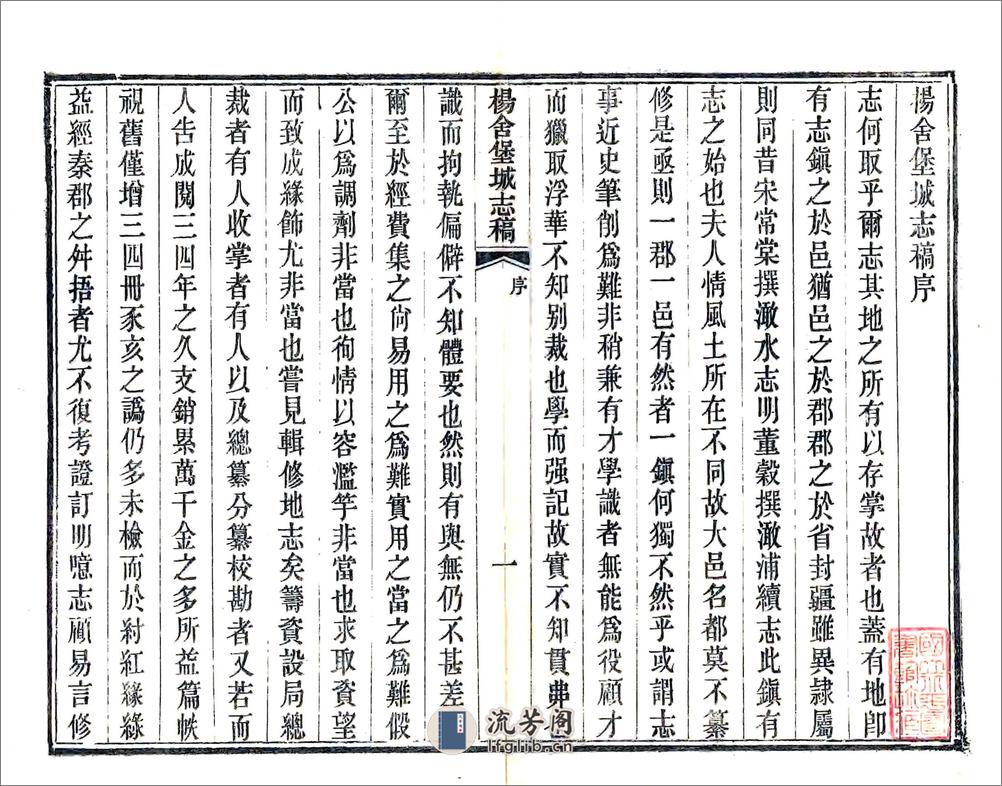 楊舍堡城志稿序
志何取乎爾志其地之所有以存掌故者也蓋有地卽
有志鎭之於邑猶邑之於郡郡之於省封疆雖異隷屬
則同昔宋常棠撰澉水志明董穀撰澉浦續志此鎭有
志之始也夫人情風土所在不同故大邑名都莫不纂
修是亟則一郡一邑有然者一鎭何獨不然乎或謂志
事近史筆削爲難非稍兼有才學識者無能爲役顧才
而獵取浮華不知別裁也學而强記故實不知貫弗也
楊舍堡城志稿 序 一
識而拘執偏僻不知體要也然則有與無仍不甚差
爾至於經費集之尙易用之爲難實用之當之爲難假
公以爲調劑非當也徇情以容濫竽非當也求取資望
而致成緣飾尤非當也嘗見輯修地志矣籌資設局總
裁者有人收掌者有人以及總纂分纂校勘者又若而
人告成閱三四年之久支銷累萬千金之多所益篇帙
視舊僅增三四冊豕亥之譌仍多未檢而於紂紅緣綠
益經秦郡之舛捂者尤不復考證訂明噫志顧易言修
流芳阁
lfglib.cn